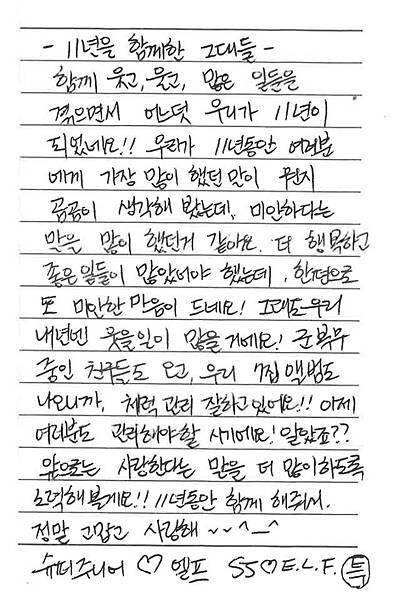 - 11년을 함께한 그대들 -
함께 웃고, 울고, 많은 일들을
겪으면서 어느덧 우리가 11년이
되었네요!! 우리가 11년동안 여러분
에게 가장 많이 했던 말이 뭔지
곰곰이 생각해 봤는데, 미안하다는
말을 많이 했던거 같아요. 더 행복하고
좋은일들이 많았어야 했는데, 한편으로
또 미안한 마음이 드네요! 그래도 우리
내년엔 웃을일이 많을거에요! 군복무
중인 친구들도 오고, 우리 7집 앨범도
나오니까, 체력 관리 잘하고 있어요!! 이제
여러분도 관리해야할 시기에요! 알았죠??
앞으로는 사랑한다는 말을 더 많이하도록
노력해볼게요!! 11년동안 함께 해줘서.
정말 고맙고 사랑해 ~~^_^
슈퍼주니어 ♡ 엘프 SJ♡E.L.F. 특